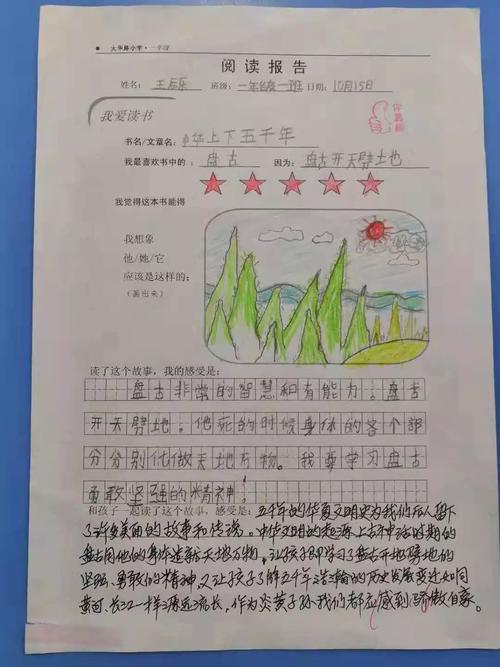 大华路小学·一年级
阅读报告
姓名： 班级：一年级一班 日期：10月15日
我爱读书
你真棒
书名/文章名：中华上下五千年
我最喜欢书中的：盘古 因为：盘古开天劈土也
我觉得这本书能得
我想象
他/她/它
应该是这样的：
（画出来）
读了这个故事，我的感受是：
盘古非常的智慧和有能力。盘古
开天劈地。他死的时候身体的各个部
分分别化做天地万物。我要学习盘古
勇敢坚强的精神！
和孩子一起读了这个故事，我的感受是：五千年的华夏文明史为我们后人留下
了许多美丽的故事和传说。中华文明的起源上古神话时期的
盘古用他的身体造就天地万物，让孩子即学习了盘古开地劈地的
坚强、勇敢的精神，又让孩子了解五千年的历史发展变迁如同
黄河、长江一样源远流长，作为炎黄子孙我们都应感到骄傲自豪。